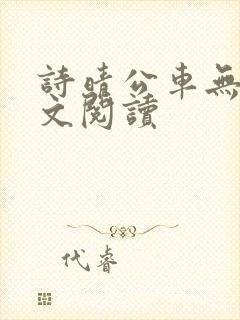 詩晴公車無
文閱讀
代睿